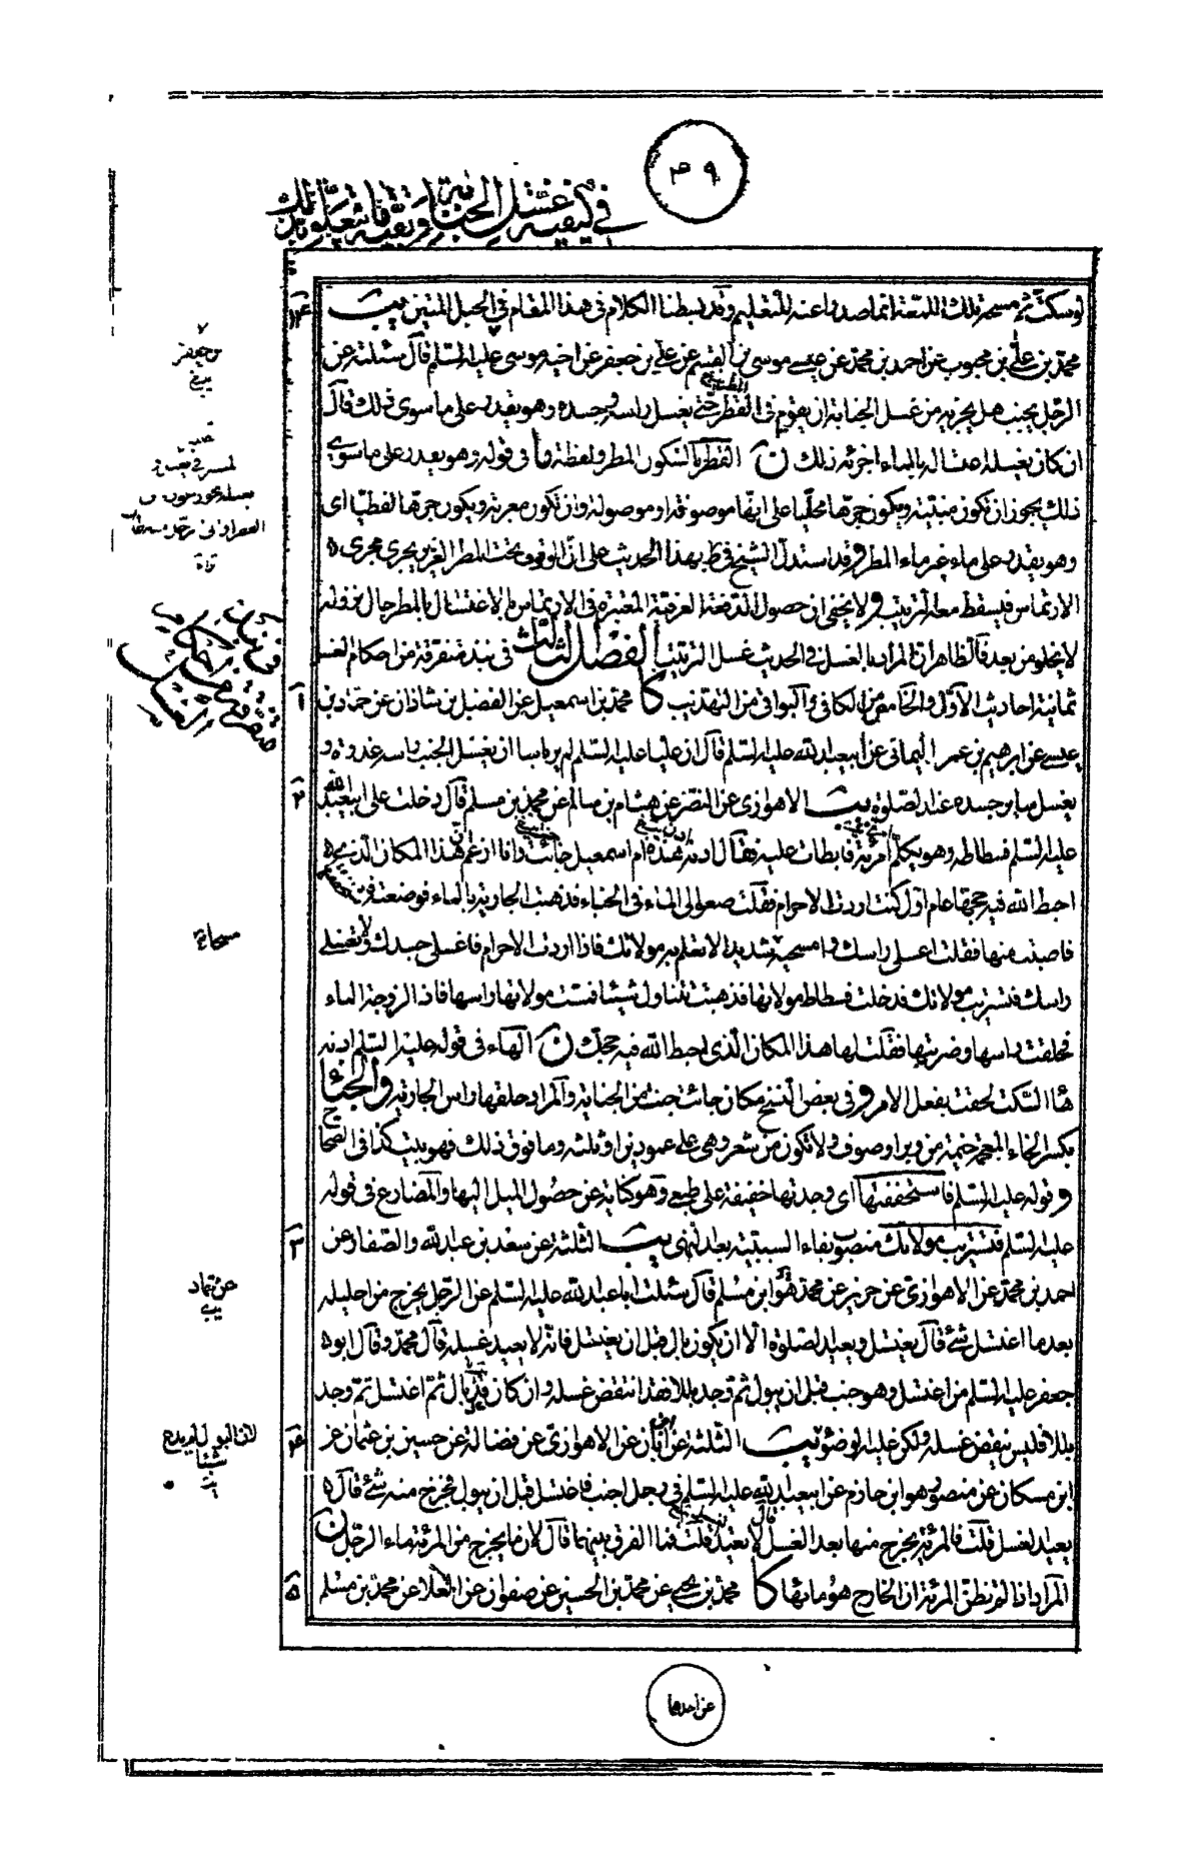 ٤٩
في كيفية غسل الجنابة وبقية ما يتعلق بذلك
لو سكت ثم مسح تلك اللمعة انما صدر عنه للتعليم وقد بسطنا الكلام في هذا المقام في الحبل المتين يب
محمد بن علي بن محبوب عن احمد بن محمد عن موسى بن القسم عن علي بن جعفر عن اخيه موسى عليه السلم قال سئلته عن
الرجل يجنب هل يجزيه من غسل الجنابة ان يقوم في القطر حتى يغسل راسه وجسده وهو يقدر على ما سوى ذلك قال
ان كان يغسله اغتساله بالماء اجزئه ذلك ن القطر بالسكون المطر ولفظة ما في قوله وهو يقدر على ما سوى
ذلك يجوز ان تكون مبنية ويكون جرها محليا على انها موصوفة او موصولة وان تكون معربة ويكون جرها لفظيا اى
وهو يقدر على ماء غير ماء المطر وقد استدل الشيخ في ط بهذا الحديث على ان الوقوف تحت المطر الغزير يجرى مجرى
الارتماس فيسقط معه الترتيب ولا يخفى ان حصول الدفعة العرفية المعتبرة في الارتماس بالاغتسال بالمطر حال نزوله
لا يخلو من بعد فالظاهر ان المراد بالغسل في الحديث غسل الترتيب الفصل الثالث في نبذ متفرقة من احكام الغسل
ثمانية احاديث الاول والخامس من الكافي والبواقي من التهذيب كا محمد بن اسمعيل عن الفضل بن شاذان عن حماد بن
عيسى عن ابرهيم بن عمر اليماني عن ابيعبدالله عليه السلم قال ان عليا عليه السلم لم ير باسا ان يغسل الجنب راسه غدوة و
يغسل ساير جسده عند الصلوة يب الاهوازى عن النضر عن هشام بن سالم عن محمد بن مسلم قال دخلت على ابيعبدالله
عليه السلم فسطاطه وهو يكلم امرئة فابطات عليه فقال ادنه هذه ام اسمعيل جائت وانا ازعم ان هذا المكان الذي
احبط الله فيه حجها عام اول كنت اردت الاحرام فقلت ضعوا لى الماء في الخباء فذهبت الجارية بالماء فوضعته
فاصبت منها فقلت اغسلى راسك وامسحيه مسحا شديدا لا تعلم به مولاتك فاذا اردت الاحرام فاغسلى جسدك ولا تغسلى
راسك فتستريب مولاتك فدخلت فسطاط مولاتها فذهبت تتناول شيئا فمست مولاتها راسها فاذا لزوجة الماء
فحلقت راسها وضربتها فقلت لها هذا المكان الذي احبط الله فيه حجك ن الهاء في قوله عليه السلم ادنه
هاء السكت لحقت بفعل الامر وفي بعض النسخ مكان جائت جنت من الجناية والمراد حلقها راس الجارية والخباء
بكسر الخاء المعجمة خيمة من وبر او صوف ولا تكون من شعر وهي على عمودين او ثلثة وما فوق ذلك فهو بيت كذا في الصحاح
وقوله عليه السلم فاستخففتها اى وجدتها خفيفة على طبعى وهو كناية عن حصول الميل اليها والمضارع في قوله
عليه السلم فتستريب مولاتك منصوب بفاء السببية بعد النهى يب الثلثة عن سعد بن عبدالله والصفار عن
احمد بن محمد عن الاهوازى عن حريز عن محمد هو ابن مسلم قال سئلت ابا عبدالله عليه السلم عن الرجل يخرج من احليله
بعد ما اغتسل شئ قال يغتسل ويعيد الصلوة الا ان يكون بال قبل ان يغتسل فانه لا يعيد غسله قال محمد وقال ابو
جعفر عليه السلم من اغتسل وهو جنب قبل ان يبول ثم وجد بللا فقد انتقض غسله وان كان قد بال ثم اغتسل ثم وجد
بللا فليس ينقض غسله ولكن عليه الوضوء يب الثلثة عن ابن ابان عن الاهوازى عن فضالة عن حسين بن عثمان عن
ابن مسكان عن منصور هو ابن حازم عن ابيعبدالله عليه السلم في رجل اجنب فاغتسل قبل ان يبول فخرج منه شئ قال
يعيد الغسل قلت فالمرئة يخرج منها بعد الغسل قال لا تعيد قلت فما الفرق بينهما قال لان ما يخرج من المرئة ماء الرجل ن
المراد اذا لم تظن المرئة ان الخارج هو ماءها كا محمد بن يحيى عن محمد بن الحسين عن صفوان عن العلا عن محمد بن مسلم
١
٢
٣
٤
٥
بن جعفر
في نبذ
متفرقة من احكام
الغسل
مسحاة
عن حماد
لان البول لم يدع
شيئا
عن احدهما